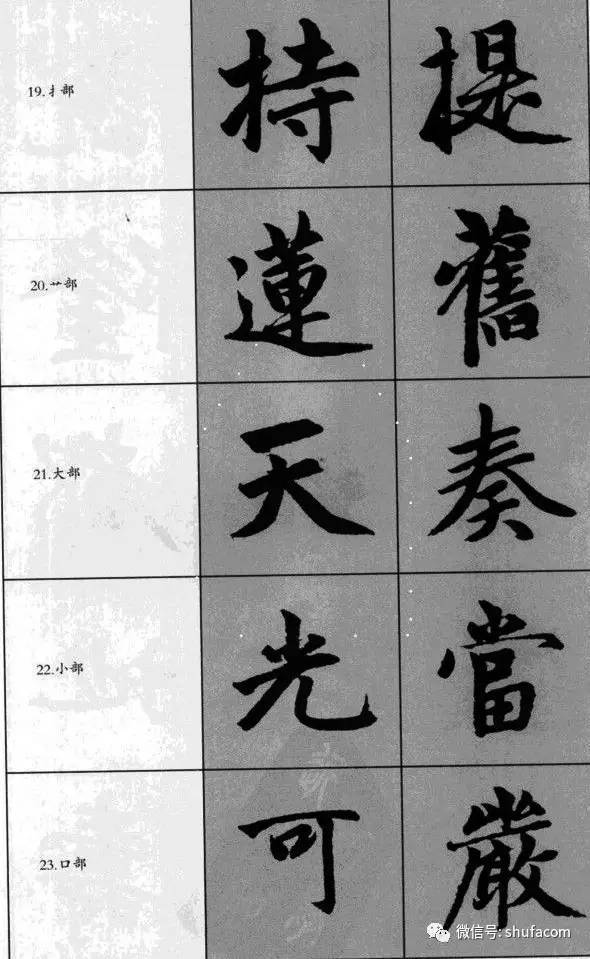 19.扌部 持 提
20.艹部 蓮 舊
21.大部 天 奏
22.小部 光 當
23.口部 可 嚴
微信号: shufacom